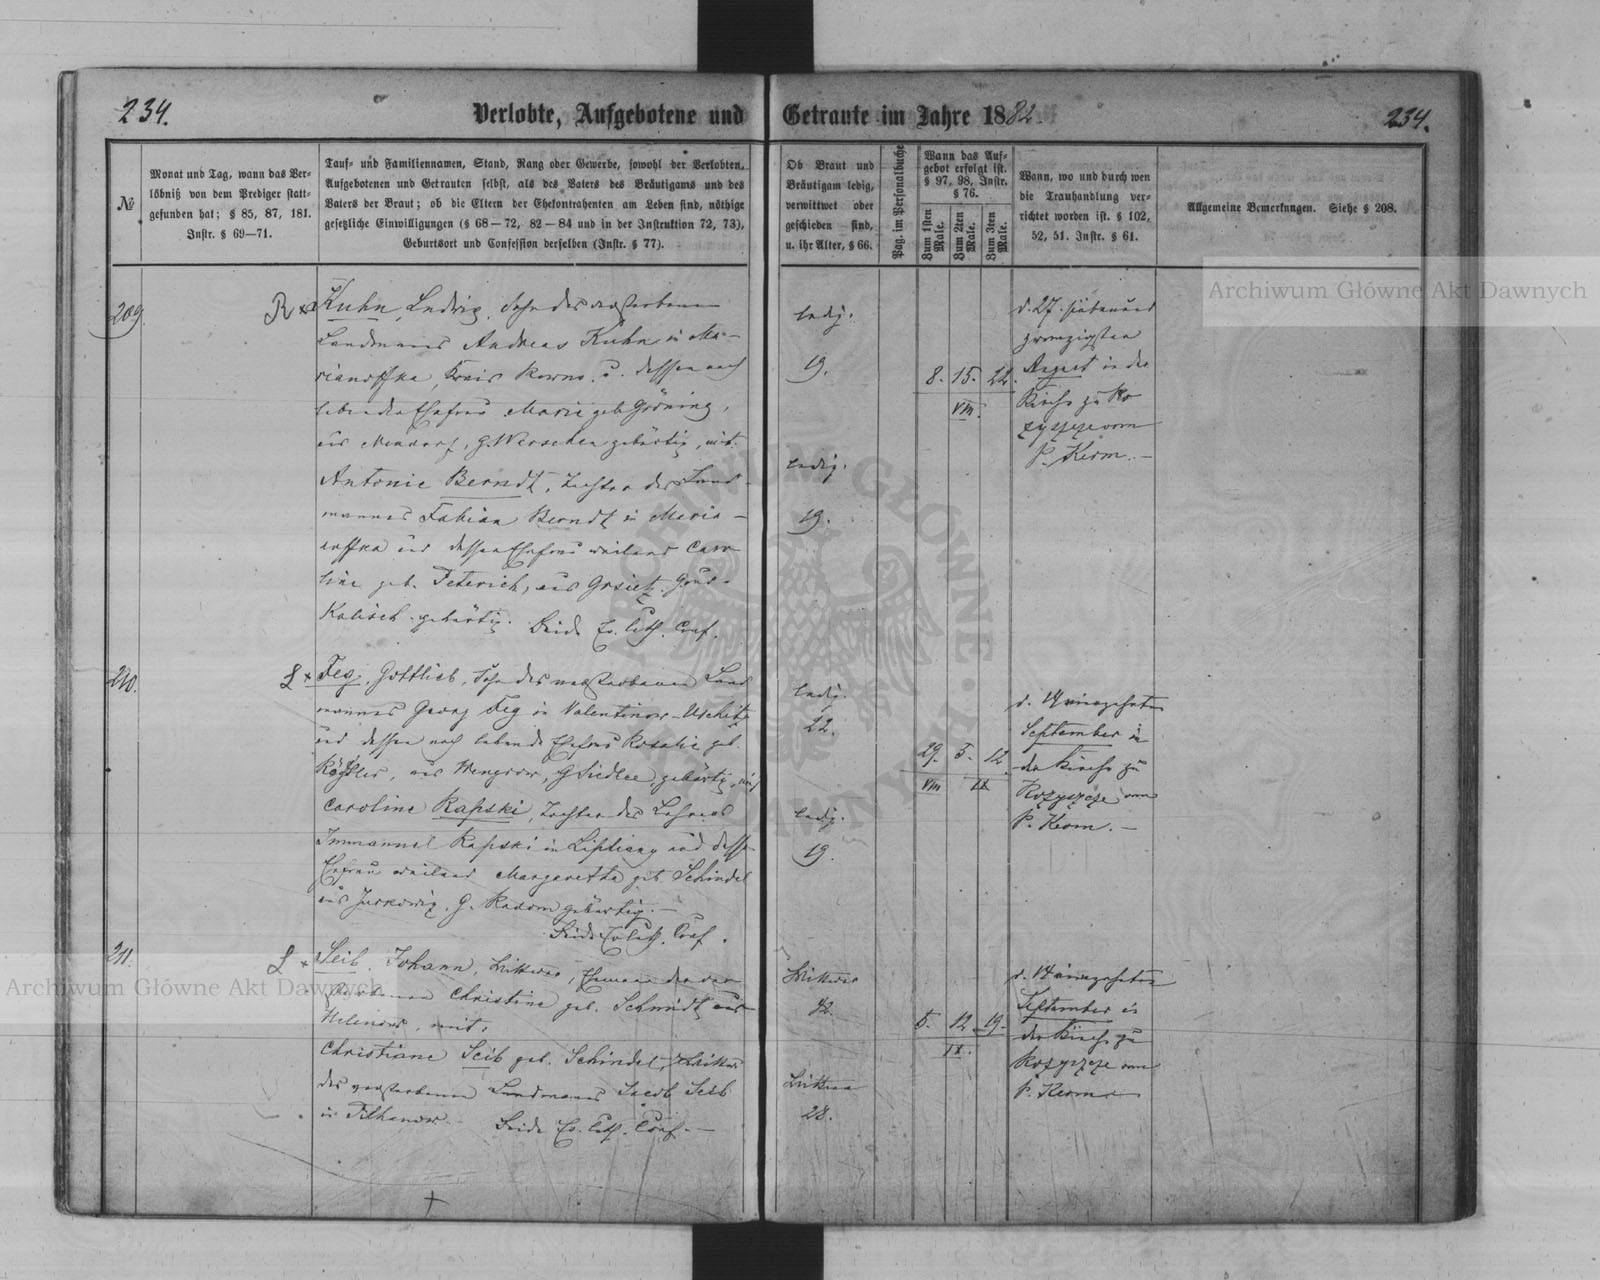 234.
Verlobte, Aufgebotene und
Getraute im Jahre 1882.
234.
№
Monat und Tag, wann das Ver-
löbniß von dem Prediger statt-
gefunden hat; § 85, 87, 181.
Instr. § 69—71.
Tauf- und Familiennamen, Stand, Rang oder Gewerbe, sowohl der Verlobten,
Aufgebotenen und Getrauten selbst, als des Vaters des Bräutigams und des
Vaters der Braut; ob die Eltern der Ehekontrahenten am Leben sind, nöthige
gesetzliche Einwilligungen (§ 68—72, 82—84 und in der Instruktion 72, 73),
Geburtsort und Confession derselben (Instr. § 77).
Ob Braut und
Bräutigam ledig,
verwittwet oder
geschieden sind,
u. ihr Alter, § 66.
Pag. im Personalbuche
Wann das Auf-
gebot erfolgt ist.
§ 97, 98, Instr.
§ 76.
Zum 1sten Male.
Zum 2ten Male.
Zum 3ten Male.
Wann, wo und durch wen
die Trauhandlung ver-
richtet worden ist. § 102,
52, 51. Instr. § 61.
Allgemeine Bemerkungen. Siehe § 208.
209.
R x Kuhn, Ludwig, Sohn des verstorbenen
Landmanns Andreas Kuhn in Ma-
rianoffka, Kreis Rowno, u. dessen noch
lebenden Ehefrau Marie geb. Görning,
aus Neudorf, G. Warschau gebürtig, mit:
Antonie Berndt, Tochter des Land-
mannes Fabian Berndt in Maria-
noffka und dessen Ehefrau weiland Caro-
line geb. Feterich, aus Gouv.
Kalisch gebürtig. Beide Ev. Luth. Conf.
ledig.
19.
ledig.
19.
8. 15. 22.
VIII.
d. 27. siebenund
zwanzigsten
August in der
Kirche zu Ro-
zyszcze vom
P. Kerm. —
210.
L x Feg, Gottlieb, Sohn des verstorbenen Land-
mannes Georg Feg in Valentinow-
und dessen noch lebende Ehefrau Rosalie geb.
aus Wengrow, G. Siedlce gebürtig, mit
Caroline Rapski, Tochter des Lehrers
Immanuel Rapski in und dessen
Ehefrau weiland Margaretha geb. Schindel
aus G. Radom gebürtig. —
Beide Ev. Luth. Conf.
ledig.
22.
ledig.
19.
29. 5. 12.
VIII IX
d. 14 vierzehnten
September in
der Kirche zu
Rozyszcze vom
P. Kerm. —
211.
L x Seib, Johann, Wittwer, Ehemann der ver-
storbenen Christine geb. Schmidt aus
Helenow, mit:
Christiane Seib geb. Schindel, Wittwe
des verstorbenen Landmannes Jacob Seib
in Beide Ev. Luth. Conf. —
Wittwer
42.
Wittwe
28.
5. 12. 19.
IX.
d. 14 vierzehnten
September in
der Kirche zu
Rozyszcze vom
P. Kerm —
Archiwum Główne Akt Dawnych
Archiwum Główne Akt Dawnych
ARCHIWUM GŁÓWNE AKT DAWNYCH